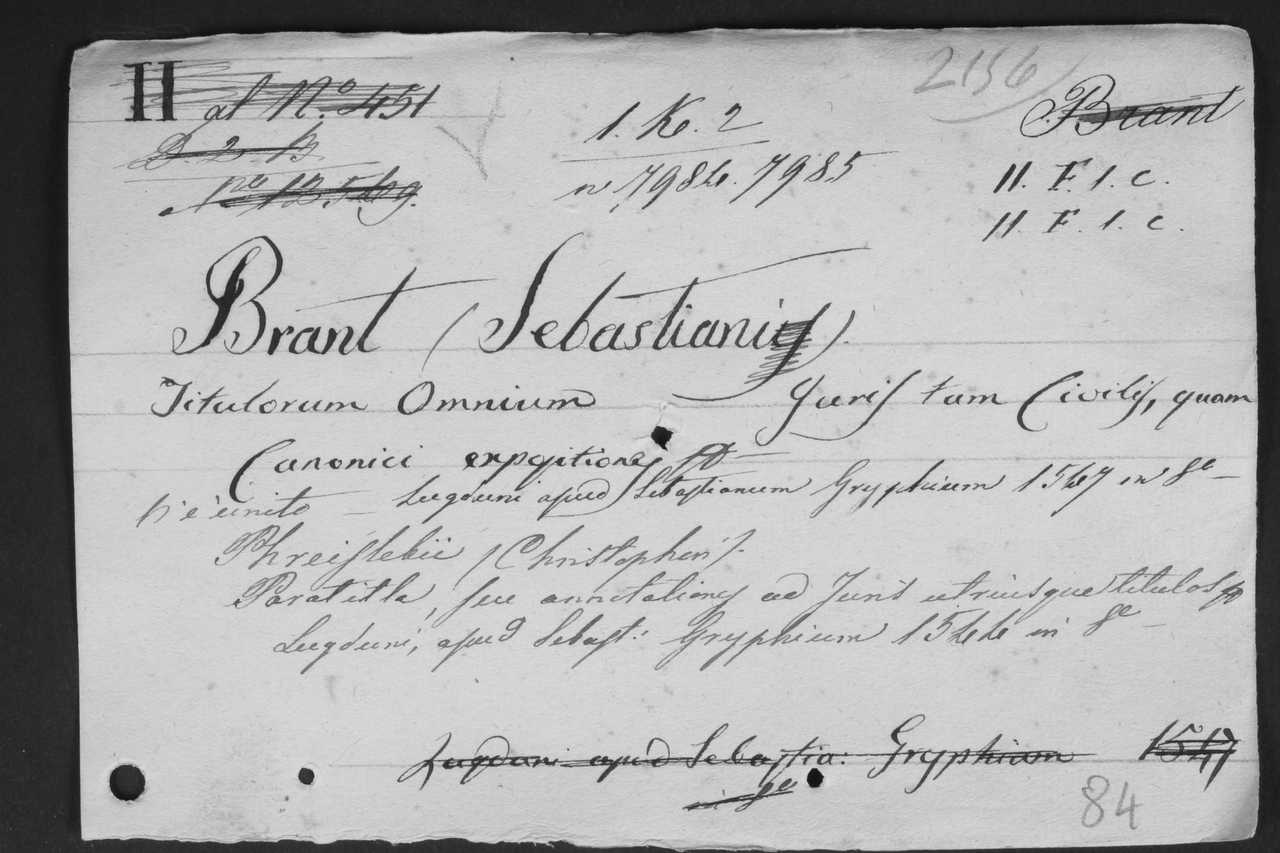 2156
II al N.º 451
Brant
D 2 B
1. K. 2
Nº 12569.
nº 7984. 7985
II. F. 1. c.
II. F. 1. c.
Brant (Sebastiani).
Titulorum Omnium Juris tam Civilis, quam
Canonici expositiones
V'è unito — Lugduni apud Sebastianum Gryphium 1547 in 8º —
Phreislebii (Christophori).
Paratitla, seu annotationes ad Juris utriusque titulos
Lugduni, apud Sebast: Gryphium 1544 in 8º —
Lugduni apud Sebastia: Gryphium 1547
in 8º
84